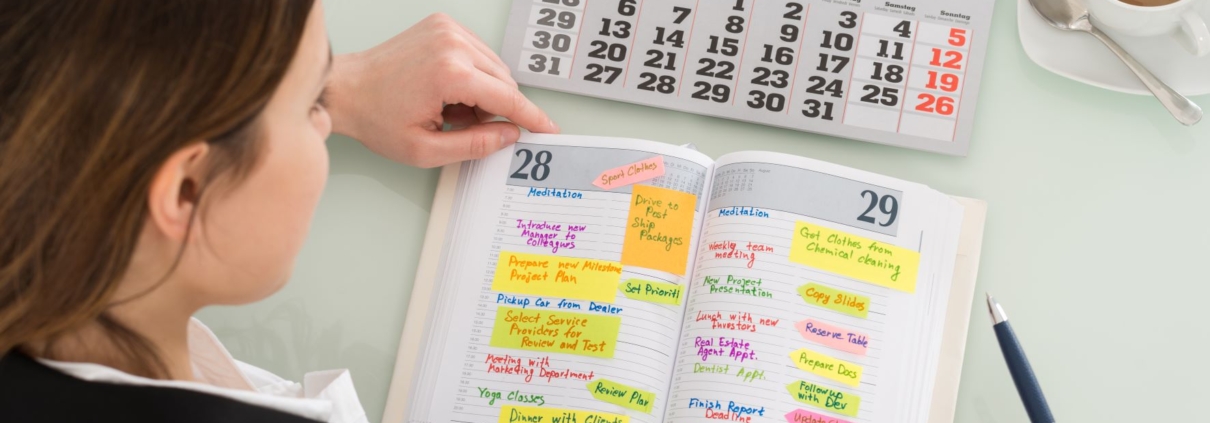 Samstag
Sonntag
29 6 7 8 9 3 4 5
30 13 14 15 16 10 11 12
31 20 21 22 23 17 18 19
27 28 29 30 24 25 26
31
28
Sport Clothes
Meditation
Drive to
Post
Ship
Packages
Introduce new
Manager to
Colleagues
Prepare new Milestone
Project Plan
Set Prioriti
Pickup Car from Dealer
Select Service
Providers for
Review and Test
Meeting with
Marketing Department
Review Plan
Yoga Classes
Dinner with Clients
29
Meditation
Get Clothes from
Chemical cleaning
Weekly team
meeting
New Project
Presentation
Copy Slides
Lunch with new
Investors
Reserve Table
Real Estate
Agent Appt.
Prepare Docs
Dentist Appt.
Followup
with Dev
Finish Report
Deadline
Update